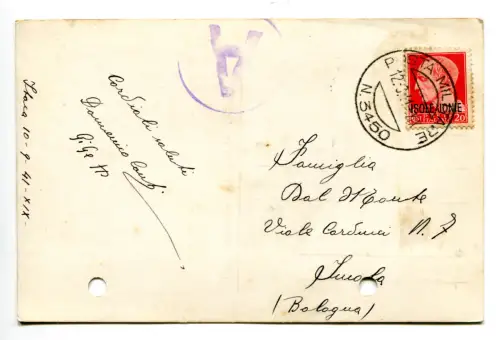 Itaca 10-9-41-XIX-
Cordiali saluti
Domenico
Famiglia
Dal Monte
Viale Carducci N. 7
Imola
(Bologna)
POSTA MILITARE
N 3450
ISOLE JONIE